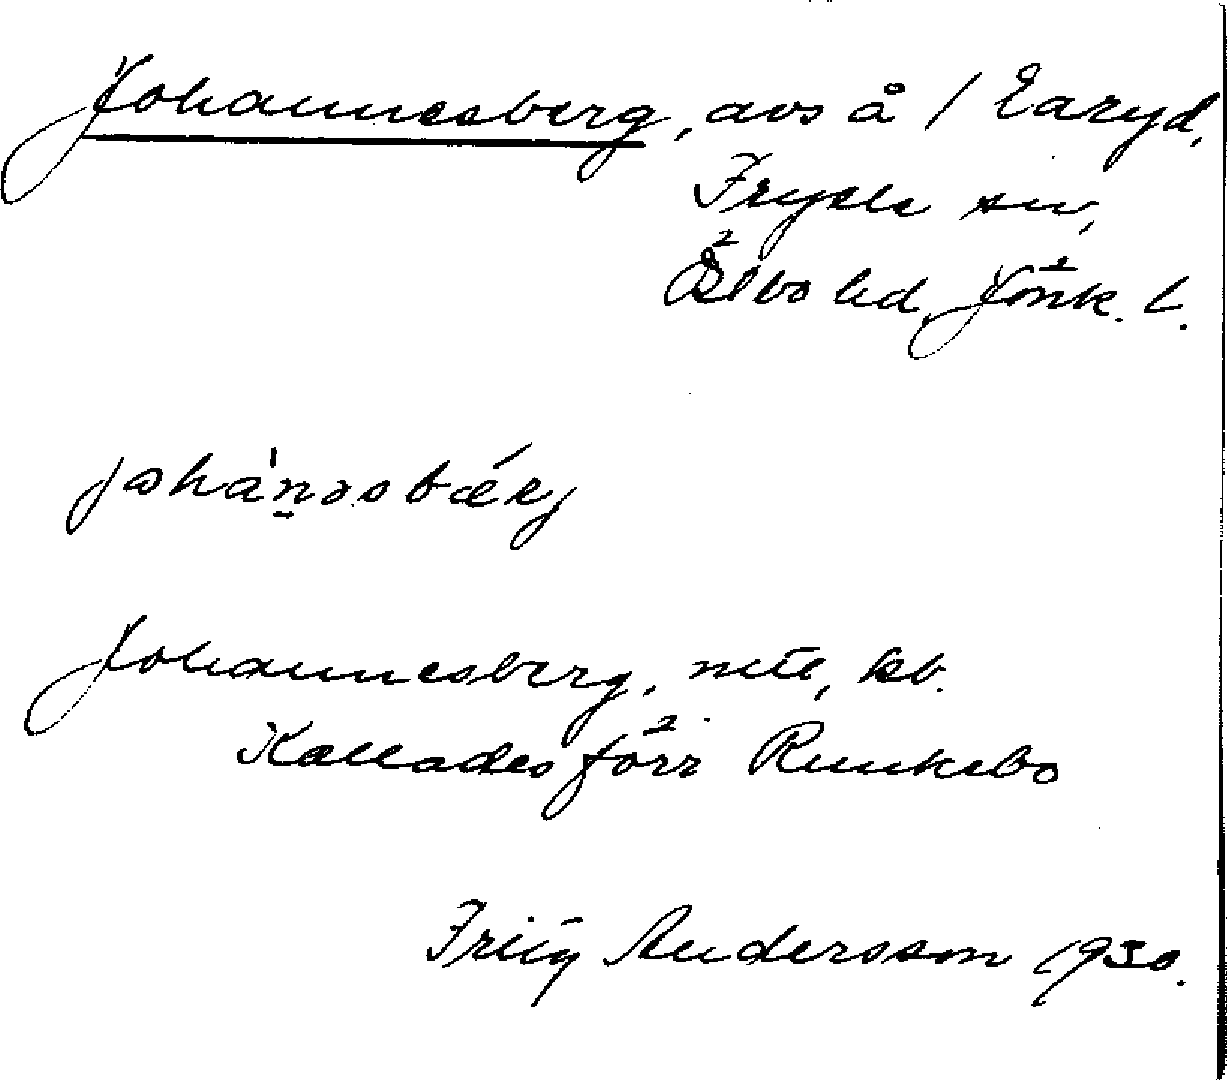 Johannesberg, avs å 1 Earyd,
Fryele sn,
Östbo hd, Jönk. l.
johànəsbærj
Johannesberg, mtl, kb.
Kallades förr Runkebo
Andersson 1930.